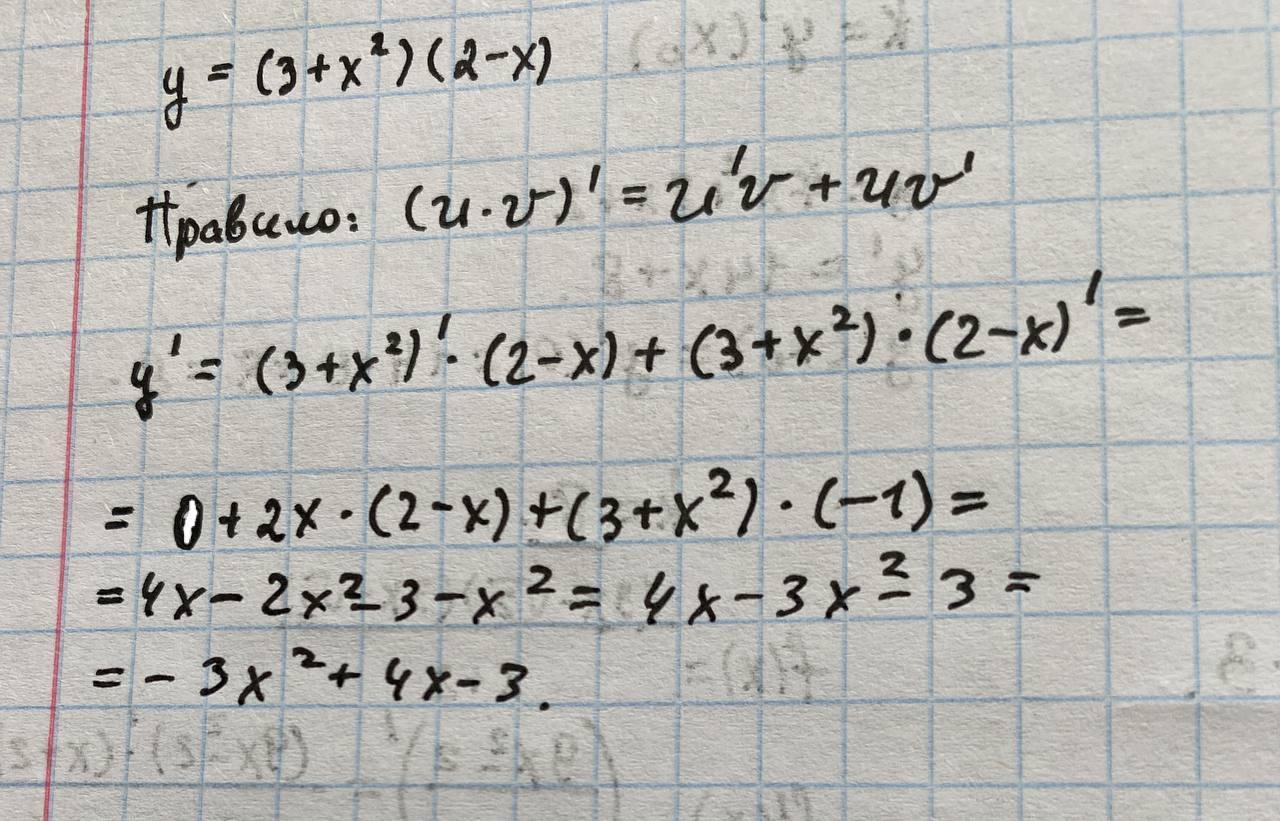 y = (3+x²)(2-x)
Правило: (u·v)' = u'v + uv'
y' = (3+x²)'·(2-x) + (3+x²)·(2-x)' =
= 0+2x·(2-x)+(3+x²)·(-1) =
= 4x - 2x² - 3 - x² = 4x - 3x² - 3 =
= - 3x² + 4x - 3.